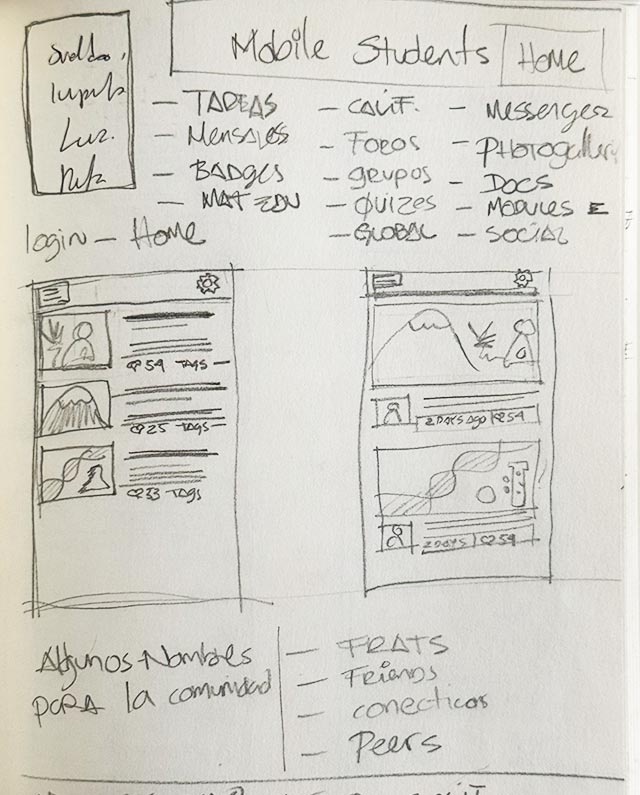 Mobile Students
Home
Luz.
— TAREAS
— Mensajes
— BADGES
— MAT EDU
— CALIF.
— Foros
— grupos
— QUIZES
— GLOBAL
— Messenger
— PHotogallery
— DOCS
— MODULES E
— SOCIAL
login — Home
54 TAGS
25 TAGS
33 TAGS
2 DAYS AGO | 54
2 DAYS | 54
Algunos Nombres
para la comunidad
— FRATS
— Friends
— Peers